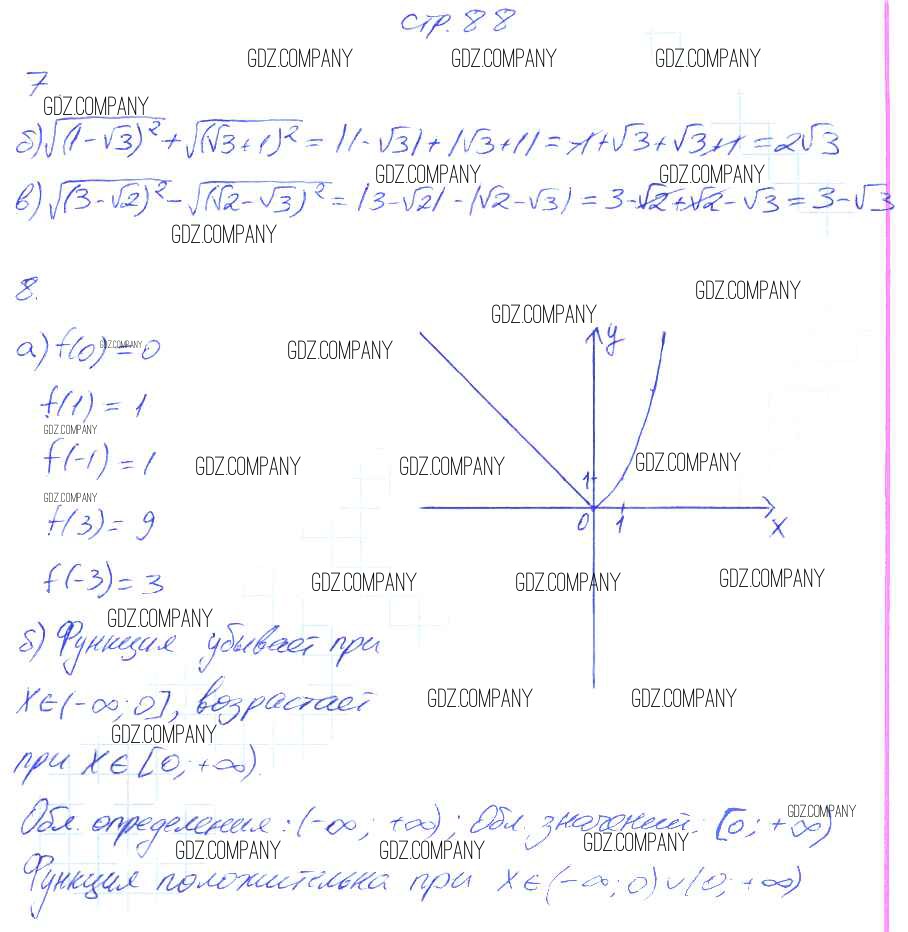 стр. 88
GDZ.COMPANY GDZ.COMPANY GDZ.COMPANY
7
GDZ.COMPANY
б) √(1-√3)² + √(√3+1)² = |1-√3| + |√3+1| = -1+√3+√3+1 = 2√3
GDZ.COMPANY GDZ.COMPANY
в) √(3-√2)² - √(√2-√3)² = |3-√2| - |√2-√3| = 3-√2+√2-√3 = 3-√3
GDZ.COMPANY
8.
GDZ.COMPANY
GDZ.COMPANY
y
а) f(0) = 0
GDZ.COMPANY
GDZ.COMPANY
f(1) = 1
GDZ.COMPANY
f(-1) = 1
GDZ.COMPANY GDZ.COMPANY GDZ.COMPANY
1
GDZ.COMPANY
f(3) = 9
0 1 x
f(-3) = 3
GDZ.COMPANY GDZ.COMPANY GDZ.COMPANY
GDZ.COMPANY
б) Функция убывает при
x∈(-∞;0], возрастает
GDZ.COMPANY GDZ.COMPANY
GDZ.COMPANY
при x∈[0;+∞).
Обл. определения: (-∞; +∞); Обл. значений: [0; +∞)
GDZ.COMPANY
GDZ.COMPANY GDZ.COMPANY GDZ.COMPANY
Функция положительна при x∈(-∞;0)∪(0;+∞)